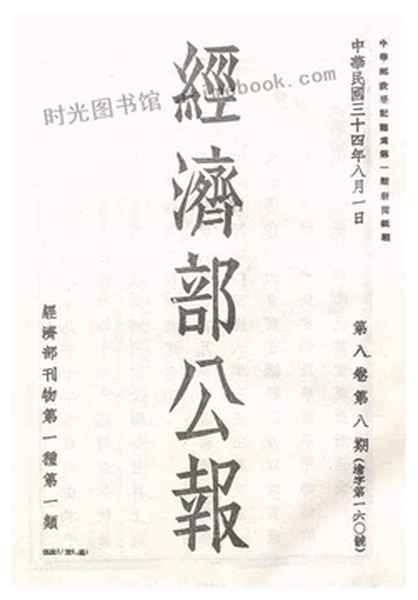 中華郵政登記認為第一類新聞紙類
中華民國三十四年八月一日
第八卷第八期(渝字第一六〇號)
經濟部公報
經濟部刊物第一種第一類
时光图书馆
book.com